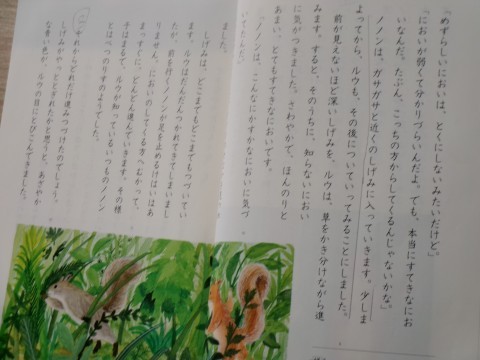 「めずらしいにおいは、とくにしないみたいだけど。」
「においが弱くて分かりづらいんだよ。でも、本当にすてきなにお
いなんだ。たぶん、こっちの方からしてくるんじゃないかな。」
ノノンは、ガサガサと近くのしげみに入っていきます。少しま
よってから、ルウも、その後についていってみることにしました。
前が見えないほど深いしげみを、ルウは、草をかき分けながら進
みます。すると、そのうちに、知らないにおい
に気がつきました。さわやかで、ほんのりと
あまい、とてもすてきなにおいです。
「ノノンは、こんなにかすかなにおいに気づ
いてたんだ。」
ました。
しげみは、どこまでもどこまでもつづいてい
ます。ルウはだんだんつかれてきてしまいまし
たが、前を行くノノンが足を止めるけはいはあ
りません。においのしてくる方へむかって、
まっすぐに、どんどん進んでいきます。その様
子はまるで、ルウが知っているいつものノノン
とはべつのりすのようでした。
それからどれだけ進みつづけたのでしょう。
しげみがやっととぎれたかと思うと、あざやか
な青い色が、ルウの目にとびこんできました。